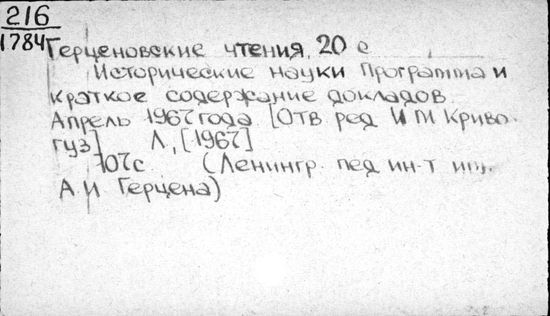 216
1784
Герценовские чтения, 20 е
Исторические науки Программа и
краткое содержание докладов.
Апрель 1967 года. [Отв ред И М Криво-
гуз] Л, [1967]
107с (Ленингр. пед ин-т им.
А И Герцена)